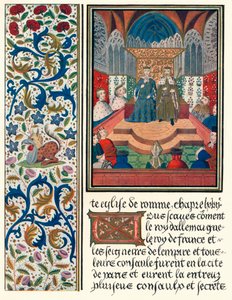 te eglise de romme. chapre lvbj
ous scaves cōment
le roy dallemaigne
le roy de france et
les seigneurs de lempire et tous
leurs consaulx furent en la cite
de paris et eurent la entreulx
pluiseurs consaulx et secrete